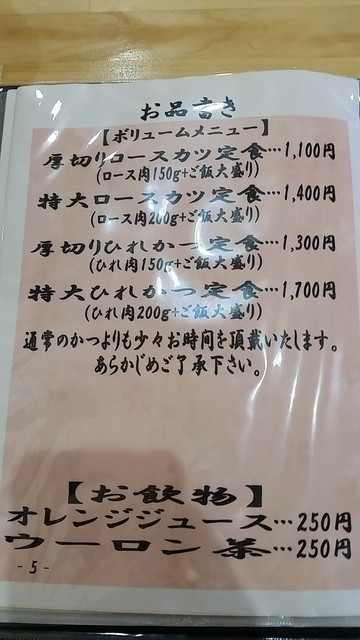 お品書き
【ボリュームメニュー】
厚切りロースカツ定食…1,100円
(ロース肉150g+ご飯大盛り)
特大ロースカツ定食…1,400円
(ロース肉200g+ご飯大盛り)
厚切りひれかつ定食…1,300円
(ひれ肉150g+ご飯大盛り)
特大ひれかつ定食…1,700円
(ひれ肉200g+ご飯大盛り)
通常のかつよりも少々お時間を頂戴いたします。
あらかじめご了承下さい。
【お飲物】
オレンジジュース…250円
ウーロン茶…250円
-5-